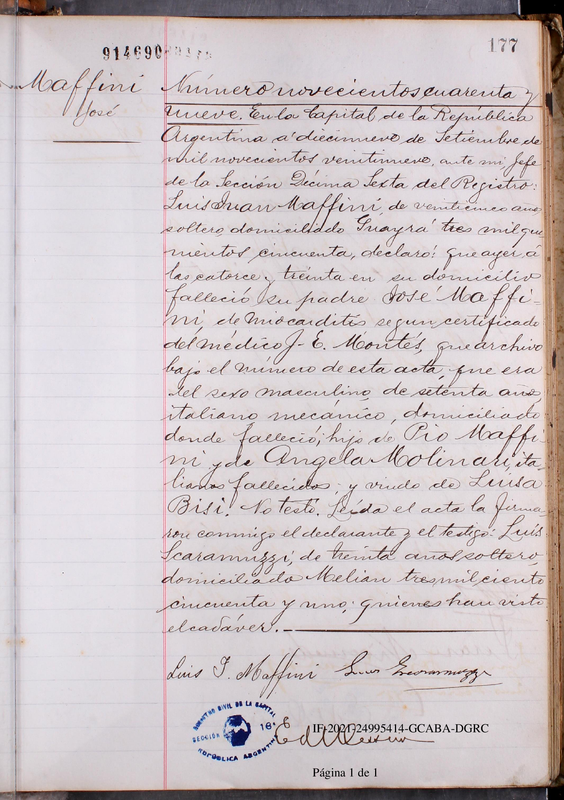 177
914690
Maffini
José
Número novecientos cuarenta y
nueve. En la Capital de la República
Argentina a diecinueve de Setiembre de
mil novecientos veintinueve, ante mi Jefe
de la Sección Décima Sexta del Registro:
Luis Juan Maffini, de veinticinco años
soltero, domiciliado Guayrá tres mil qui
nientos cincuenta, declaró: que ayer, á
las catorce y treinta en su domicilio
falleció su padre José Maffi-
ni, de miocarditis segun certificado
del médico J. E. Montés, que archivo
bajo el número de esta acta, que era
del sexo masculino, de setenta años,
italiano mecánico, domiciliado
donde falleció; hijo de Pio Maffi
ni y de Angela Molinari, ita-
lianos fallecidos; y viudo de Luisa
Bisi. No testó. Leída el acta la firma
ron conmigo el declarante y el testigo: Luis
Scaramuzzi, de treinta años, soltero,
domiciliado Melian tres mil ciento
cincuenta y uno; quienes han visto
el cadáver.
Luis J. Maffini Luis Scaramuzzi
REGISTRO CIVIL DE LA CAPITAL
SECCIÓN 16
REPÚBLICA ARGENTINA
IF-2021-24995414-GCABA-DGRC
Página 1 de 1